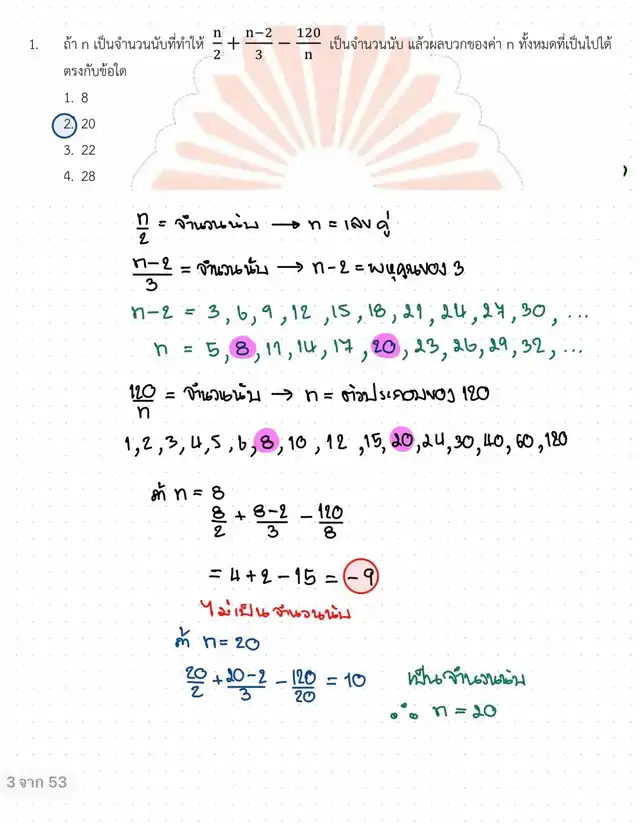 1. ถ้า n เป็นจำนวนนับที่ทำให้ n/2 + n−2/3 − 120/n เป็นจำนวนนับ แล้วผลบวกของค่า n ทั้งหมดที่เป็นไปได้
ตรงกับข้อใด
1. 8
2. 20
3. 22
4. 28
n/2 = จำนวนนับ → n = เลขคู่
n-2/3 = จำนวนนับ → n-2 = พหุคูณของ 3
n-2 = 3, 6, 9, 12, 15, 18, 21, 24, 27, 30, ...
n = 5, 8, 11, 14, 17, 20, 23, 26, 29, 32, ...
120/n = จำนวนนับ → n = ตัวประกอบของ 120
1, 2, 3, 4, 5, 6, 8, 10, 12, 15, 20, 24, 30, 40, 60, 120
ถ้า n = 8
8/2 + 8-2/3 - 120/8
= 4 + 2 - 15 = -9
ไม่เป็นจำนวนนับ
ถ้า n = 20
20/2 + 20-2/3 - 120/20 = 10 เป็นจำนวนนับ
∴ n = 20
3 จาก 53